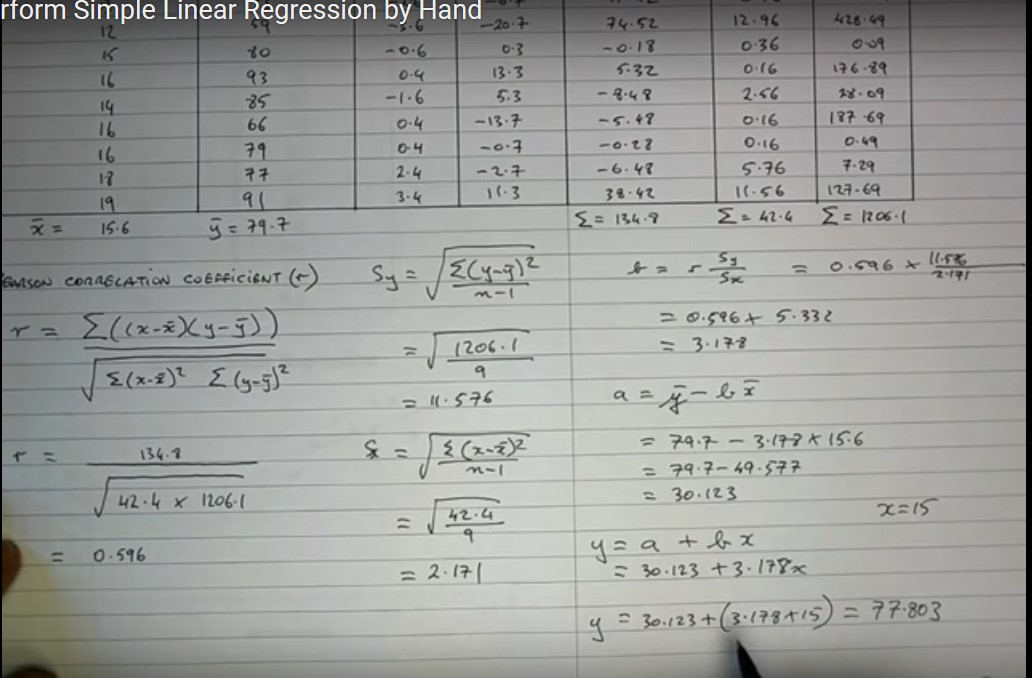 rform Simple Linear Regression by Hand
12 59 -3.6 -20.7 74.52 12.96 428.49
15 80 -0.6 0.3 -0.18 0.36 0.09
16 93 0.4 13.3 5.32 0.16 176.89
14 85 -1.6 5.3 -8.48 2.56 28.09
16 66 0.4 -13.7 -5.48 0.16 187.69
16 79 0.4 -0.7 -0.28 0.16 0.49
18 77 2.4 -2.7 -6.48 5.76 7.29
19 91 3.4 11.3 38.42 11.56 127.69
x̄ = 15.6 ȳ = 79.7 Σ = 134.8 Σ = 42.4 Σ = 1206.1
EARSON CORRELATION COEFFICIENT (r)
r = Σ((x-x̄)(y-ȳ)) / √(Σ(x-x̄)² Σ(y-ȳ)²)
r = 134.8 / √(42.4 × 1206.1)
= 0.596
Sy = √(Σ(y-ȳ)² / n-1)
= √(1206.1 / 9)
= 11.576
Sx = √(Σ(x-x̄)² / n-1)
= √(42.4 / 9)
= 2.171
b = r Sy/Sx = 0.596 × 11.576/2.171
= 0.596 × 5.332
= 3.178
a = ȳ - b x̄
= 79.7 - 3.178 × 15.6
= 79.7 - 49.577
= 30.123
x = 15
y = a + b x
= 30.123 + 3.178x
y = 30.123 + (3.178 × 15) = 77.803